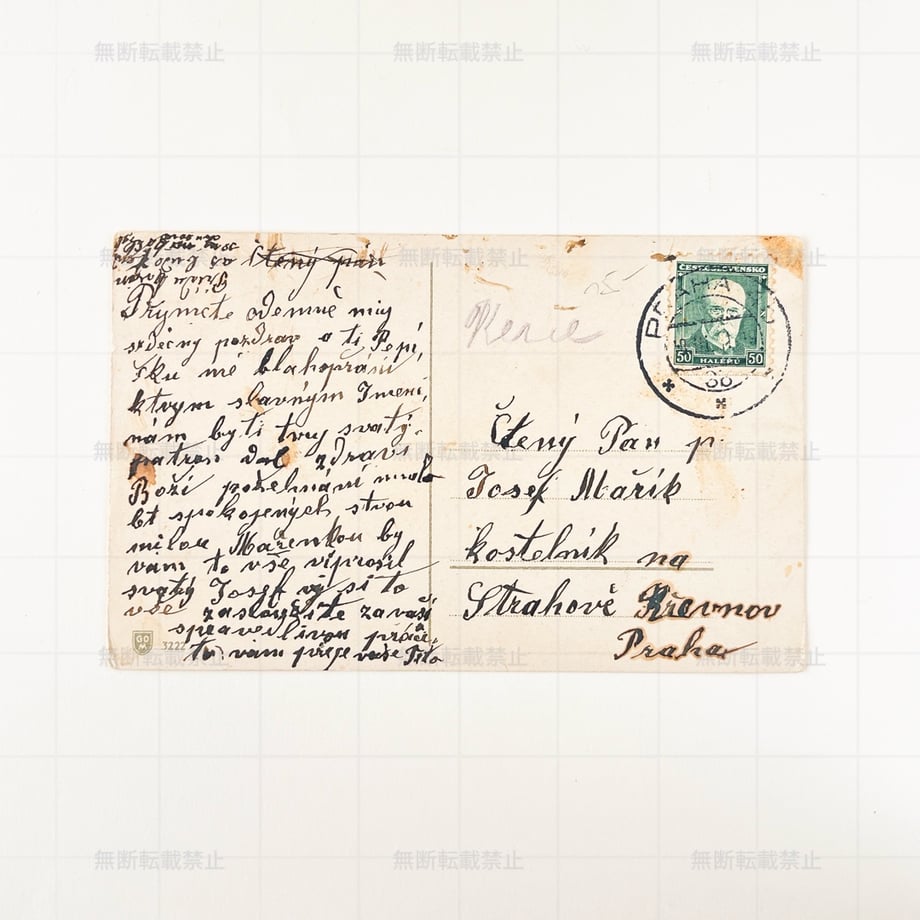 無断転載禁止 無断転載禁止 無断転載禁止
Čtený pan
Přijměte odemně muj
srdečny pozdrav a ti Pepí
čku mé blahopřání
ktvym slavným Jmení,
nám byti tvuj svatý
patron dal zdraví
Boží požehnání mnoho
let spokojených stvou
milou Mařenkou by
vám to vše viprosil
svatý Josef vý si to
vše zasloužíte za vaší
spravedlivou práci
to vám přeje vaše Teta
GOM
3222
Renée
ČESKOSLOVENSKO
50 HALÉŘŮ 50
PRAHA
36
Čtený Pán p.
Josef Mařík
kostelník na
Strahově Břevnov
Praha
無断転載禁止 無断転載禁止 無断転載禁止
無断転載禁止 無断転載禁止 無断転載禁止
無断転載禁止 無断転載禁止 無断転載禁止
無断転載禁止 無断転載禁止 無断転載禁止